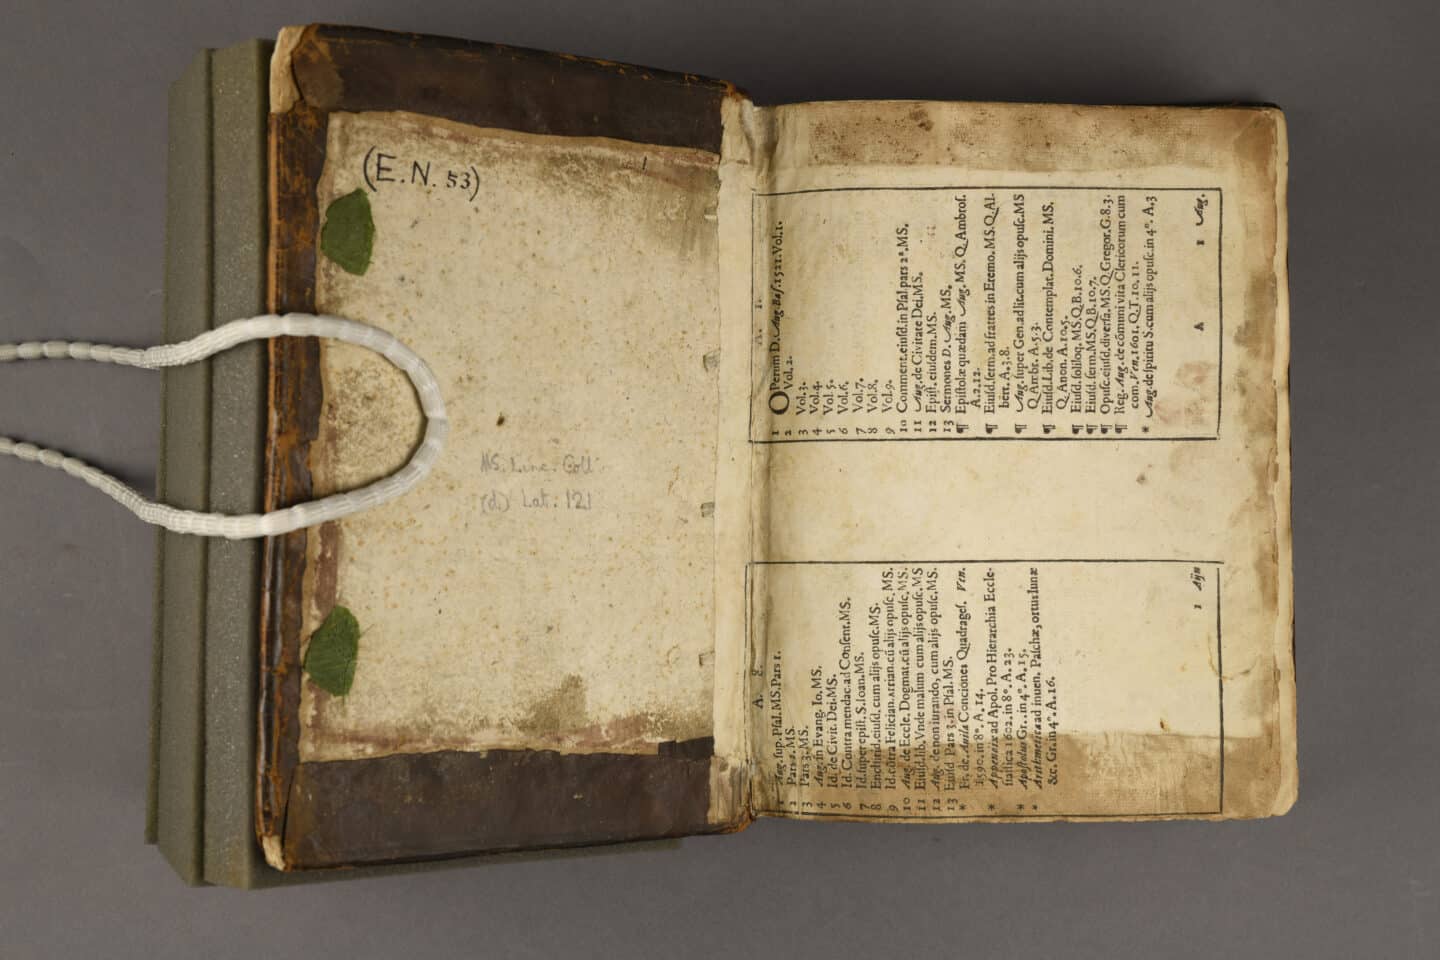 (E.N. 53)
MS. Linc. Coll.
(d.) Lat: 121
A. 1.
1 OPerum D. Aug. Bas. 1521. Vol. 1.
2 Vol. 2.
3 Vol. 3.
4 Vol. 4.
5 Vol. 5.
6 Vol. 6.
7 Vol. 7.
8 Vol. 8.
9 Vol. 9.
10 Comment. eiuſd. in Pſal. pars 2ª. MS.
11 Aug. de Civitate Dei. MS.
12 Epiſt. eiuſdem. MS.
13 Sermones D. Aug. MS.
¶ Epiſtolæ quædam Aug. MS. Q. Ambroſ.
A. 2. 12.
¶ Eiuſd. ſerm. ad fratres in Eremo. MS. Q. Al-
bert. A. 3. 8.
¶ Aug. ſuper Gen. ad lit. cum alijs opuſc. MS
Q. Ambr. A. 5. 3.
¶ Eiuſd. Lib. de Contemplat. Domini. MS.
Q. Anon. A. 10. 5.
¶ Eiuſd. ſoliloq. MS. Q. B. 10. 6.
¶ Eiuſd. ſerm. MS. Q. B. 10. 7.
¶ Opuſc. eiuſd. diverſa. MS. Q. Gregor. G. 8. 3.
¶ Reg. Aug. de cõmuni vita Clericorum cum
com. Ven. 1601. Q. T. 10. 11.
* Aug. de ſpiritu S. cum alijs opuſc. in 4°. A. 3
A 1 Aug.
A. 8.
1 Aug. ſup. Pſal. MS. Pars 1.
2 Pars 2. MS.
3 Pars 3. MS.
4 Aug. in Evang. Io. MS.
5 Id. de Civit. Dei. MS.
6 Id. Contra mendac. ad Conſent. MS.
7 Id. ſuper epiſt. S. Ioan. MS.
8 Enchirid. eiuſd. cum alijs opuſc. MS.
9 Id. cõtra Felician. Arrian. cũ alijs opuſc. MS.
10 Aug. de Eccle. Dogmat. cũ alijs opuſc. MS.
11 Eiuſd. lib. Vnde malum cum alijs opuſc. MS
12 Aug. de non iurando, cum alijs opuſc. MS.
13 Eiuſd Pars 3. in Pſal. MS.
* Fr. de Avila Conciones Quadrageſ. Ven.
1590. in 8°. A. 14.
* Appendix ad Apol. Pro Hierarchia Eccle-
ſiaſtica 1602. in 8°. A. 23.
* Apoſtolus Gr. in 4°. A. 15.
* Arithmetica ad inuen. Paſchæ, ortus lunæ
&c. Gr. in 4°. A. 16.
1 Aijn